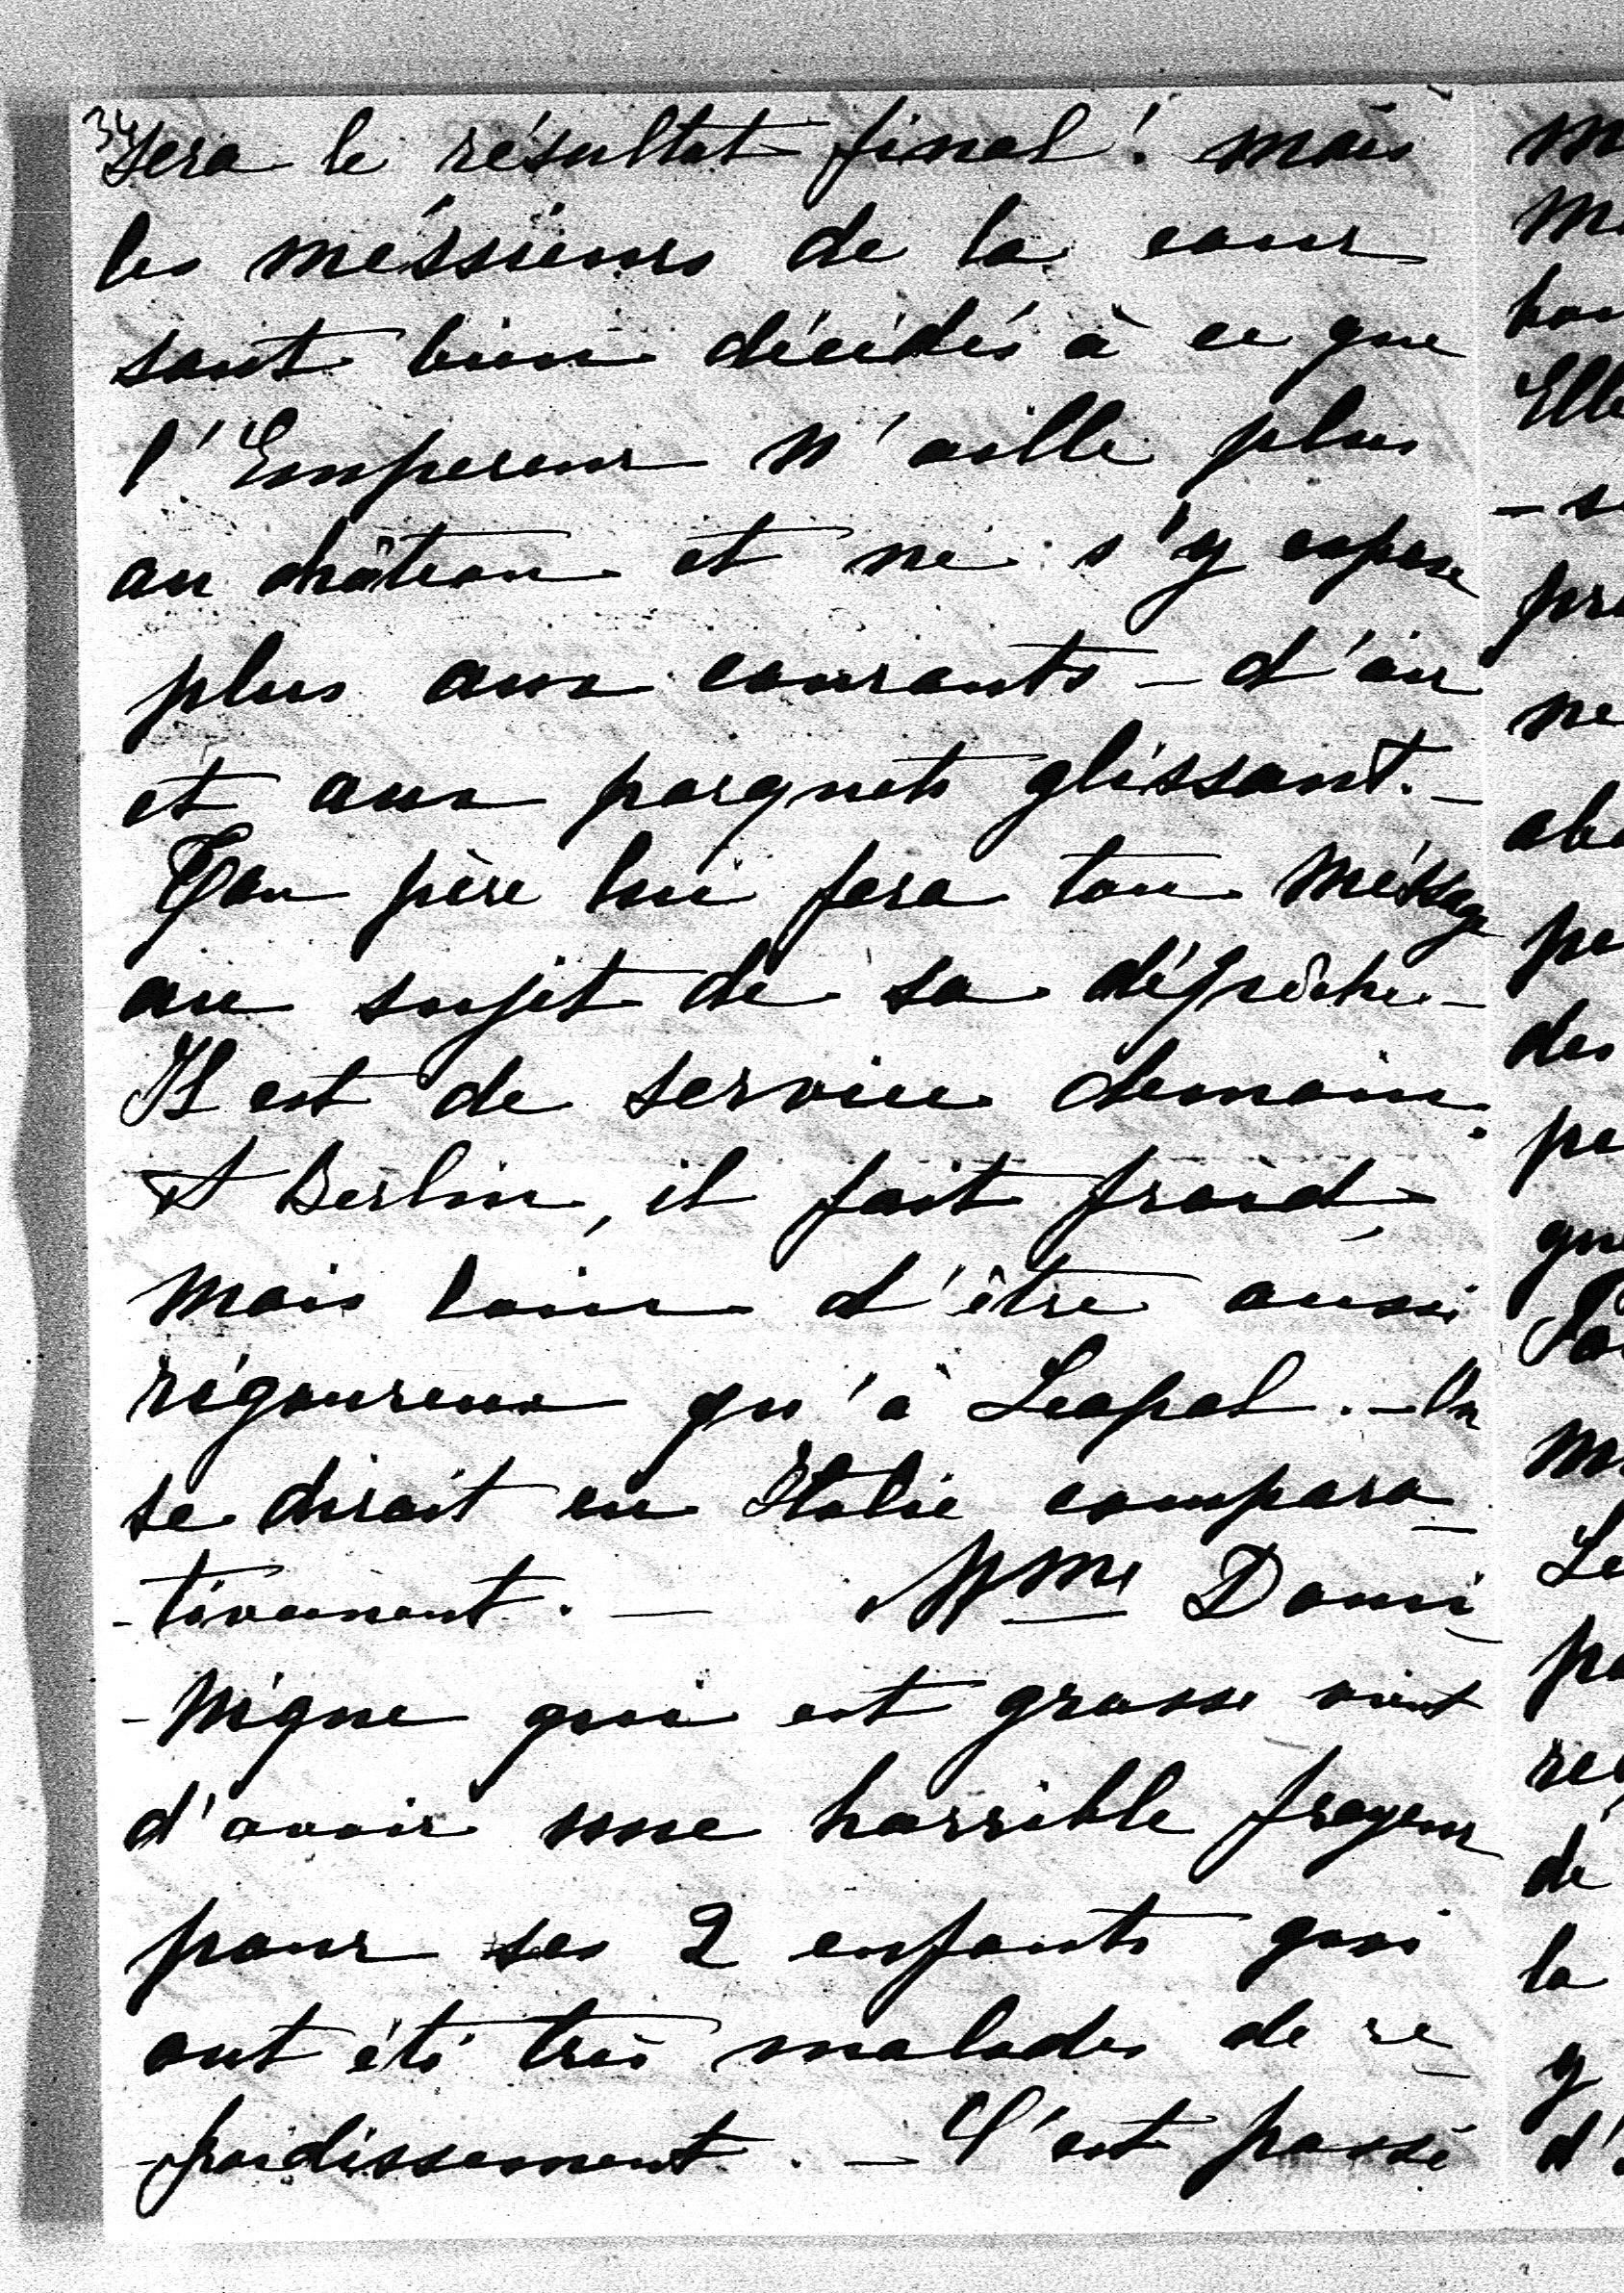 34
sera le résultat final! mais
les méssieurs de la cour
sont bien décidés à ce que
l'Empereur n'aille plus
au château et ne s'y expose
plus aux courants-d'air
et aux parquets glissant. -
Ton père lui fera ton méssage
au sujet de sa dépêche -
Il est de service demain.
A Berlin, il fait froid,
mais loin d'être aussi
rigoureux qu'à Léopol. - On
se dirait en Italie compara-
-tivement. - Mme Domi-
-nique qui est grosse vient
d'avoir une horrible frayeur
pour ses 2 enfants qui
ont été très malades de re-
-froidissement. - C'est passé